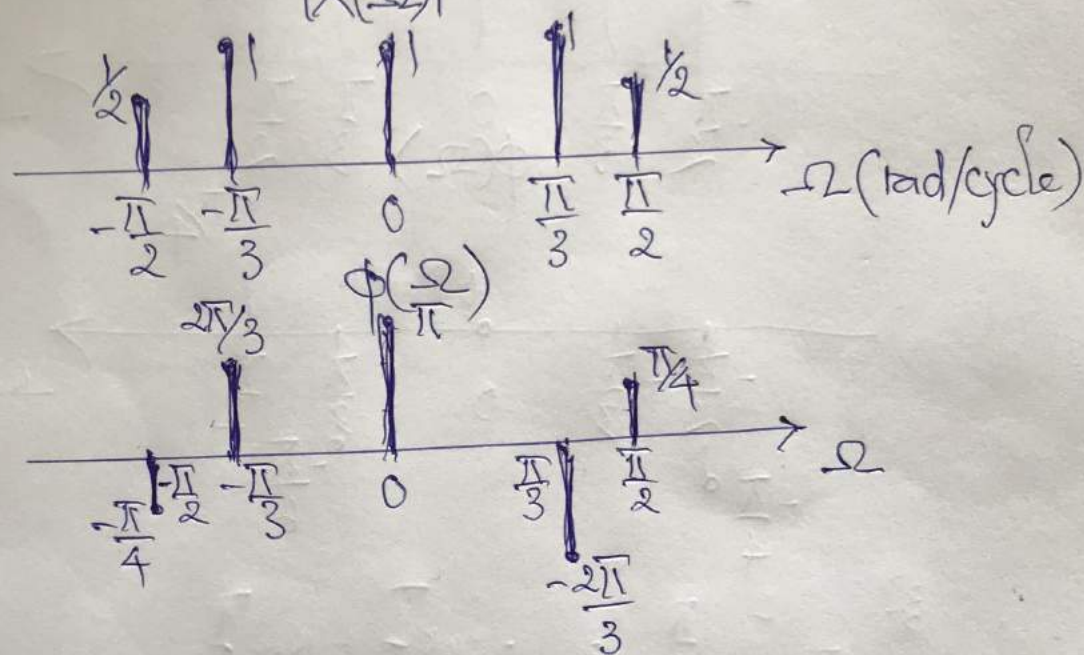 |X(Ω)|
1/2 1 1 1 1/2
-π/2 -π/3 0 π/3 π/2 Ω (rad/cycle)
φ(Ω)
2π/3 π π/4
-π/4 -π/2 -π/3 0 π/3 π/2 Ω
-2π/3